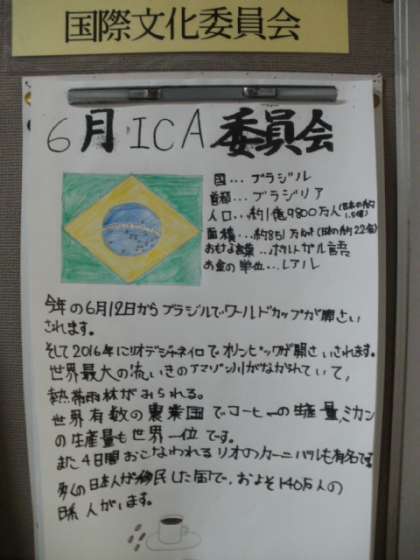 国際文化委員会
6月ICA委員会
国…ブラジル
首都…ブラジリア
人口…約1億9800万人(日本の約1.5倍)
面積…約851万km²(日本の約22倍)
おもな言葉…ポルトガル語
お金の単位…レアル
今年の6月12日からブラジルでワールドカップが開さい
されます。
そして2016年にリオデジャネイロでオリンピックが開さいされます。
世界最大の流いきのアマゾン川がながれていて、
熱帯雨林がみられる。
世界有数の農業国でコーヒーの生産量、ミカン
の生産量も世界一位です。
また4日間おこなわれるリオのカーニバルも有名です
多くの日本人が移民した国で、およそ140万人の
日系人がいます。